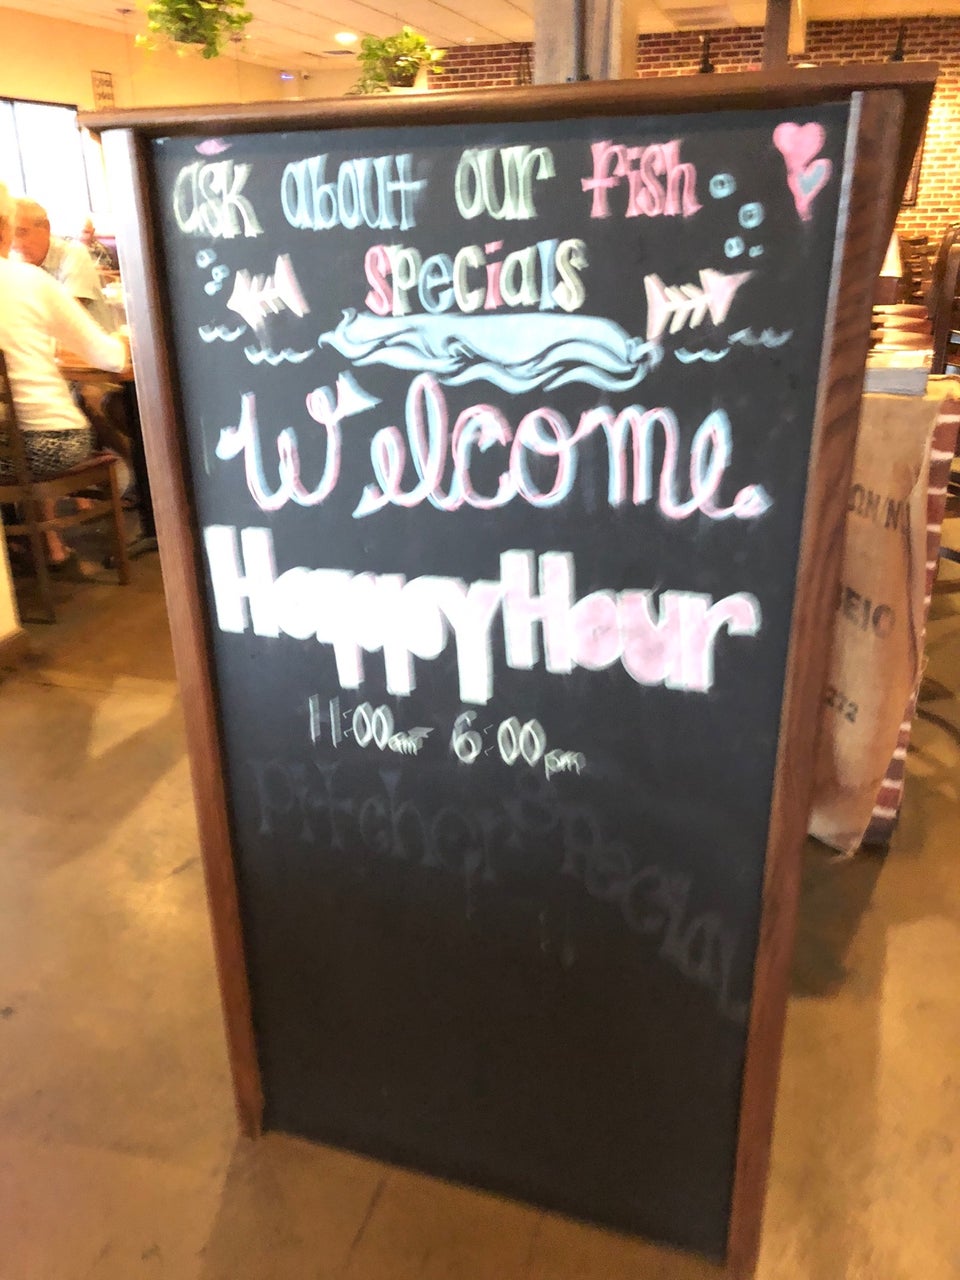 ask about our fish
specials
Welcome
Happy Hour
11:00am 6:00pm
Pitcher Special